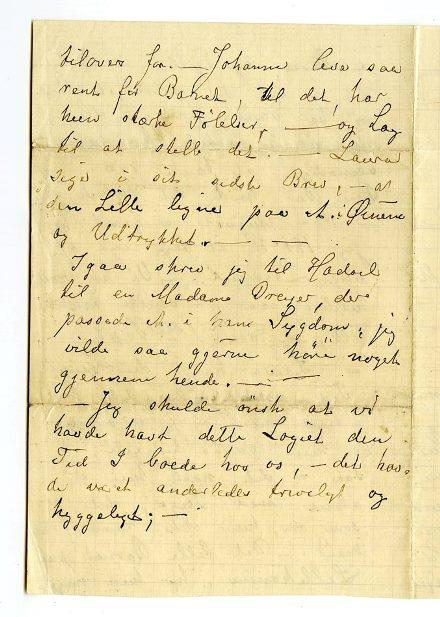 tilovers for. — Johanne leve saa
rent for Barnet, til det, har
hun stærke Følelser, — og Lag
til at stelle det. — Laura
siger i sit sidste Brev, — at
den Lille ligne paa A. i Øinene
og Udtrykket. — —
Igaar skrev jeg til Hadsel
til en Madame Dreyer, der
passede A. i hans Sygdom, jeg
vilde saa gjerne høre noget
gjennem hende. — —
— Jeg skulde ønsk at vi
havde havt dette Logiet den
Tid I boede hos os, — det hav-
de været anderledes triveligt og
hyggeligt; —